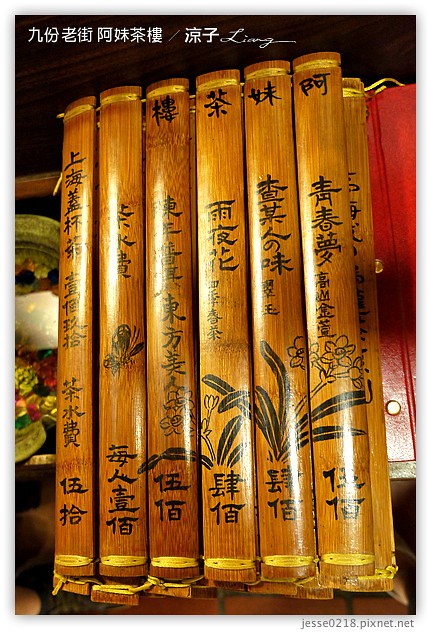 九份老街 阿妹茶樓 / 涼子 Liang
阿
青春夢
高山金萱
伍佰
妹
查某人の味
翠玉
肆佰
茶
雨夜花
四季春茶
肆佰
樓
東方美人
伍佰
茶水費
每人壹佰
上海蓋杯茶 壹佰玖拾 茶水費 伍拾
jesse0218.pixnet.net